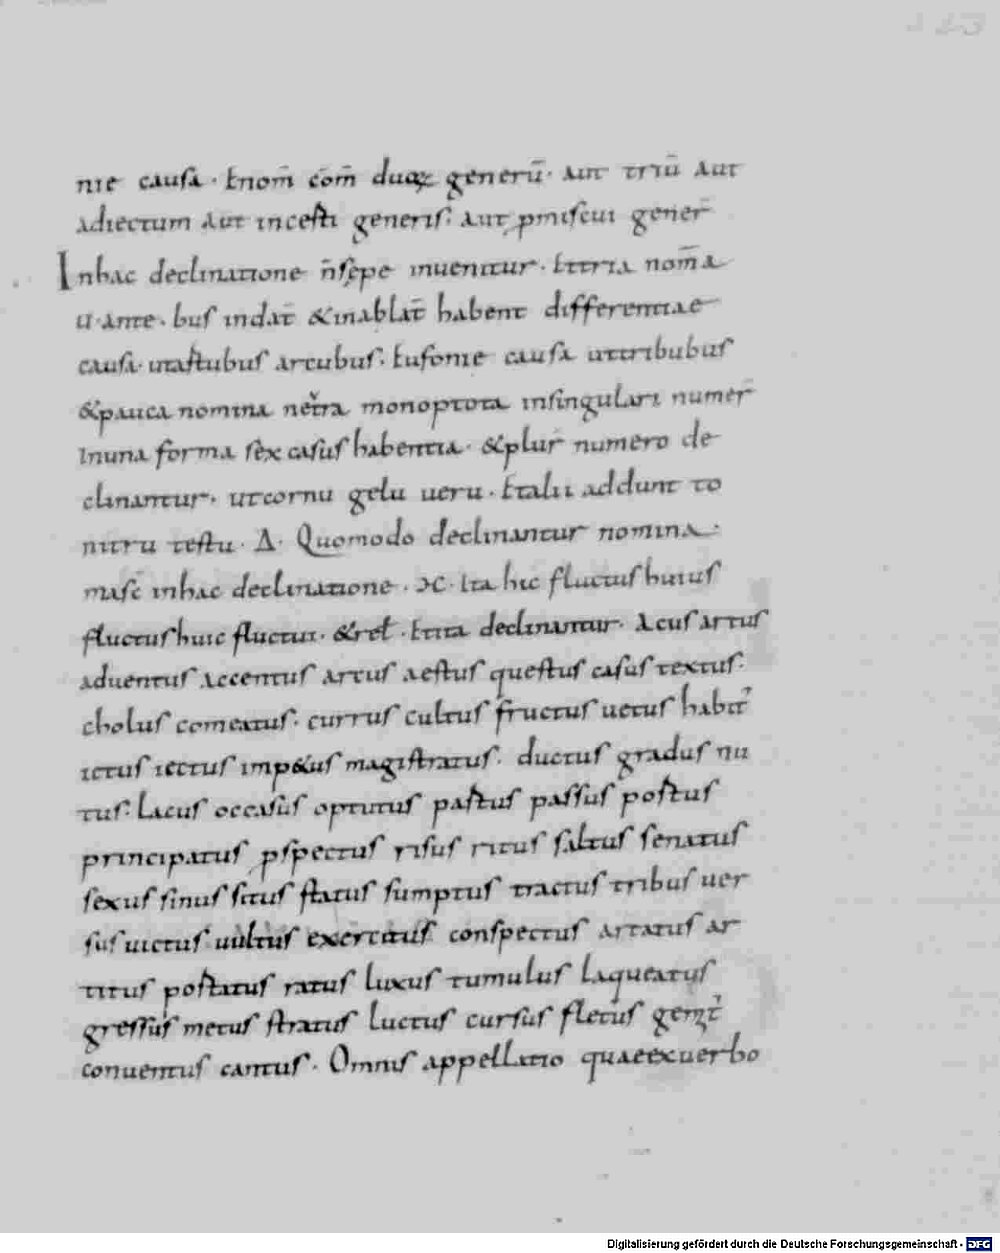 nie causa · Et nom̄ com̄ duoꝝ generū · aut triū aut
adiectum aut incesti generis · aut ꝓmiscui gener̄
Inhac declinatione n̄ sępe inuenitur · Et tria nom̄a
u · ante · bus indat̄ & inablat̄ habent differentiae
causa · utastubus arcubus · Eufonie causa uttribubus
& pauca nomina neͧtra monoptota insingulari numer̄
Inuna forma sex casus habentia · & plur̄ numero de
clinantur · utcornu gelu ueru · Et alii addunt to
nitru testu · Δ · Quomodo declinantur nomina ·
masc̄ inhac declinatione · ϽC · Ita hic fluctus huius
fluctus huic fluctui · & rel̄ · Et ita declinantur · Acus artus
aduentus accentus arcus aestus questus casus textus ·
cholus comeatus · currus cultus fructus uetus habit᾽
ictus iectus imp&us magistratus · ductus gradus nu
tus · Lacus occasus optutus pastus passus postus
principatus ꝓspectus risus ritus saltus senatus
sexus sinus situs status sumptus tractus tribus uer
sus uictus uultus exercitus conspectus artatus ar
titus postatus ratus luxus tumulus laqueatus
gressus metus stratus luctus cursus fletus gemit᾽
conuentus cantus · Omnis appellatio quae ex uerbo
Digitalisierung gefördert durch die Deutsche Forschungsgemeinschaft - DFG